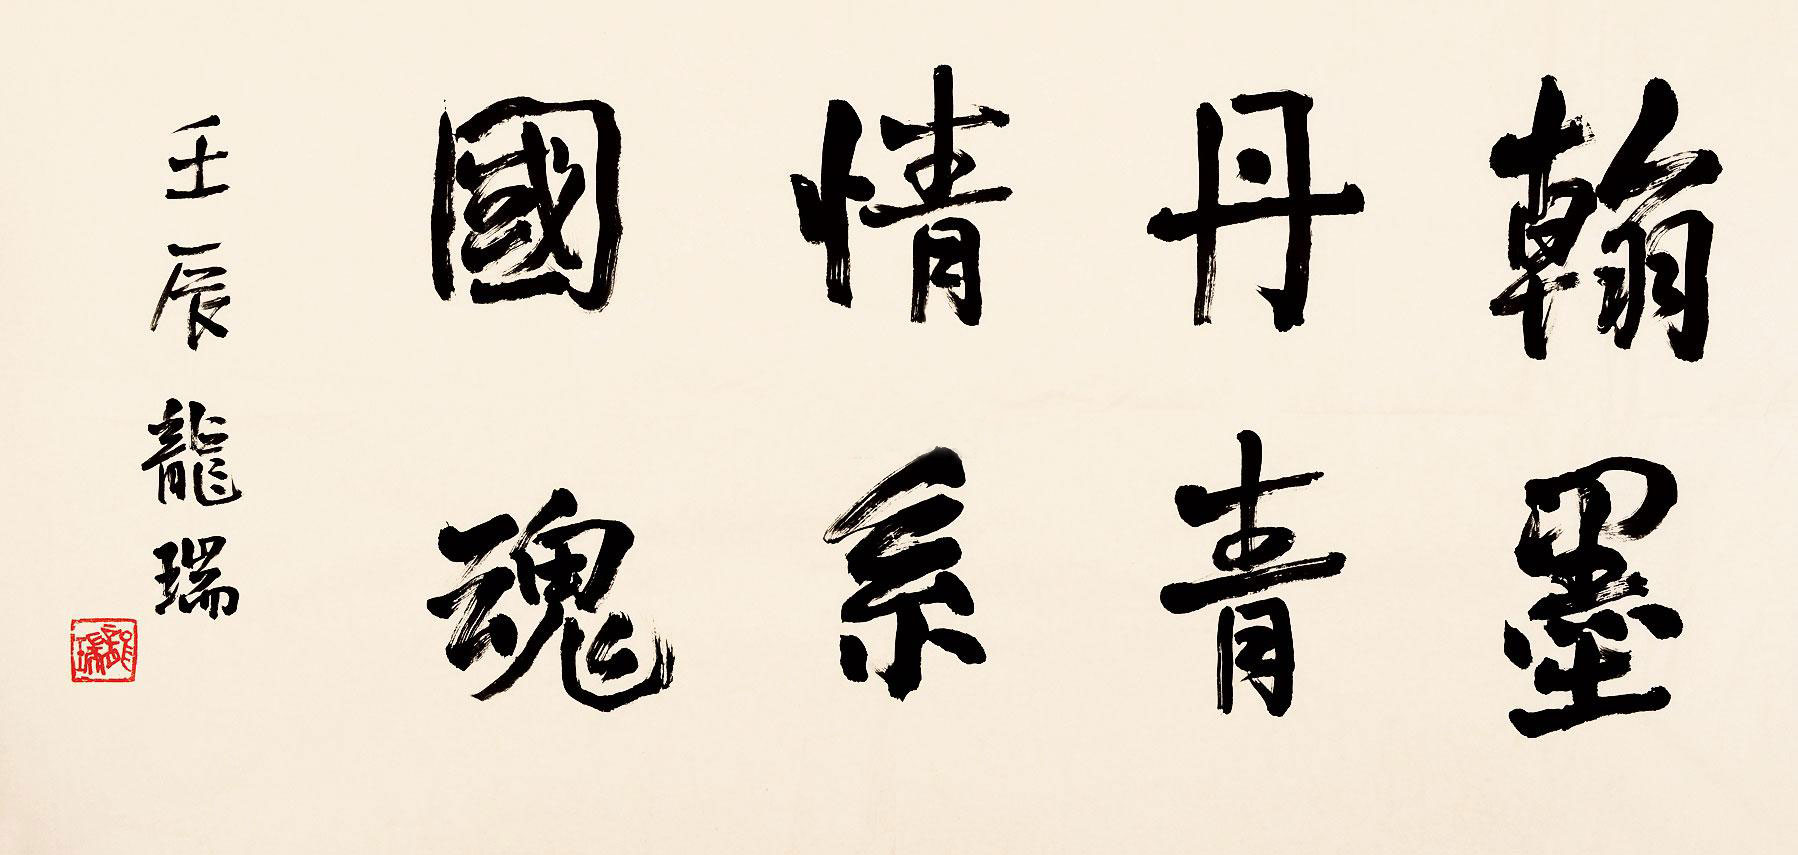 翰墨
丹青
情系
國魂
壬辰龍瑞
龍瑞